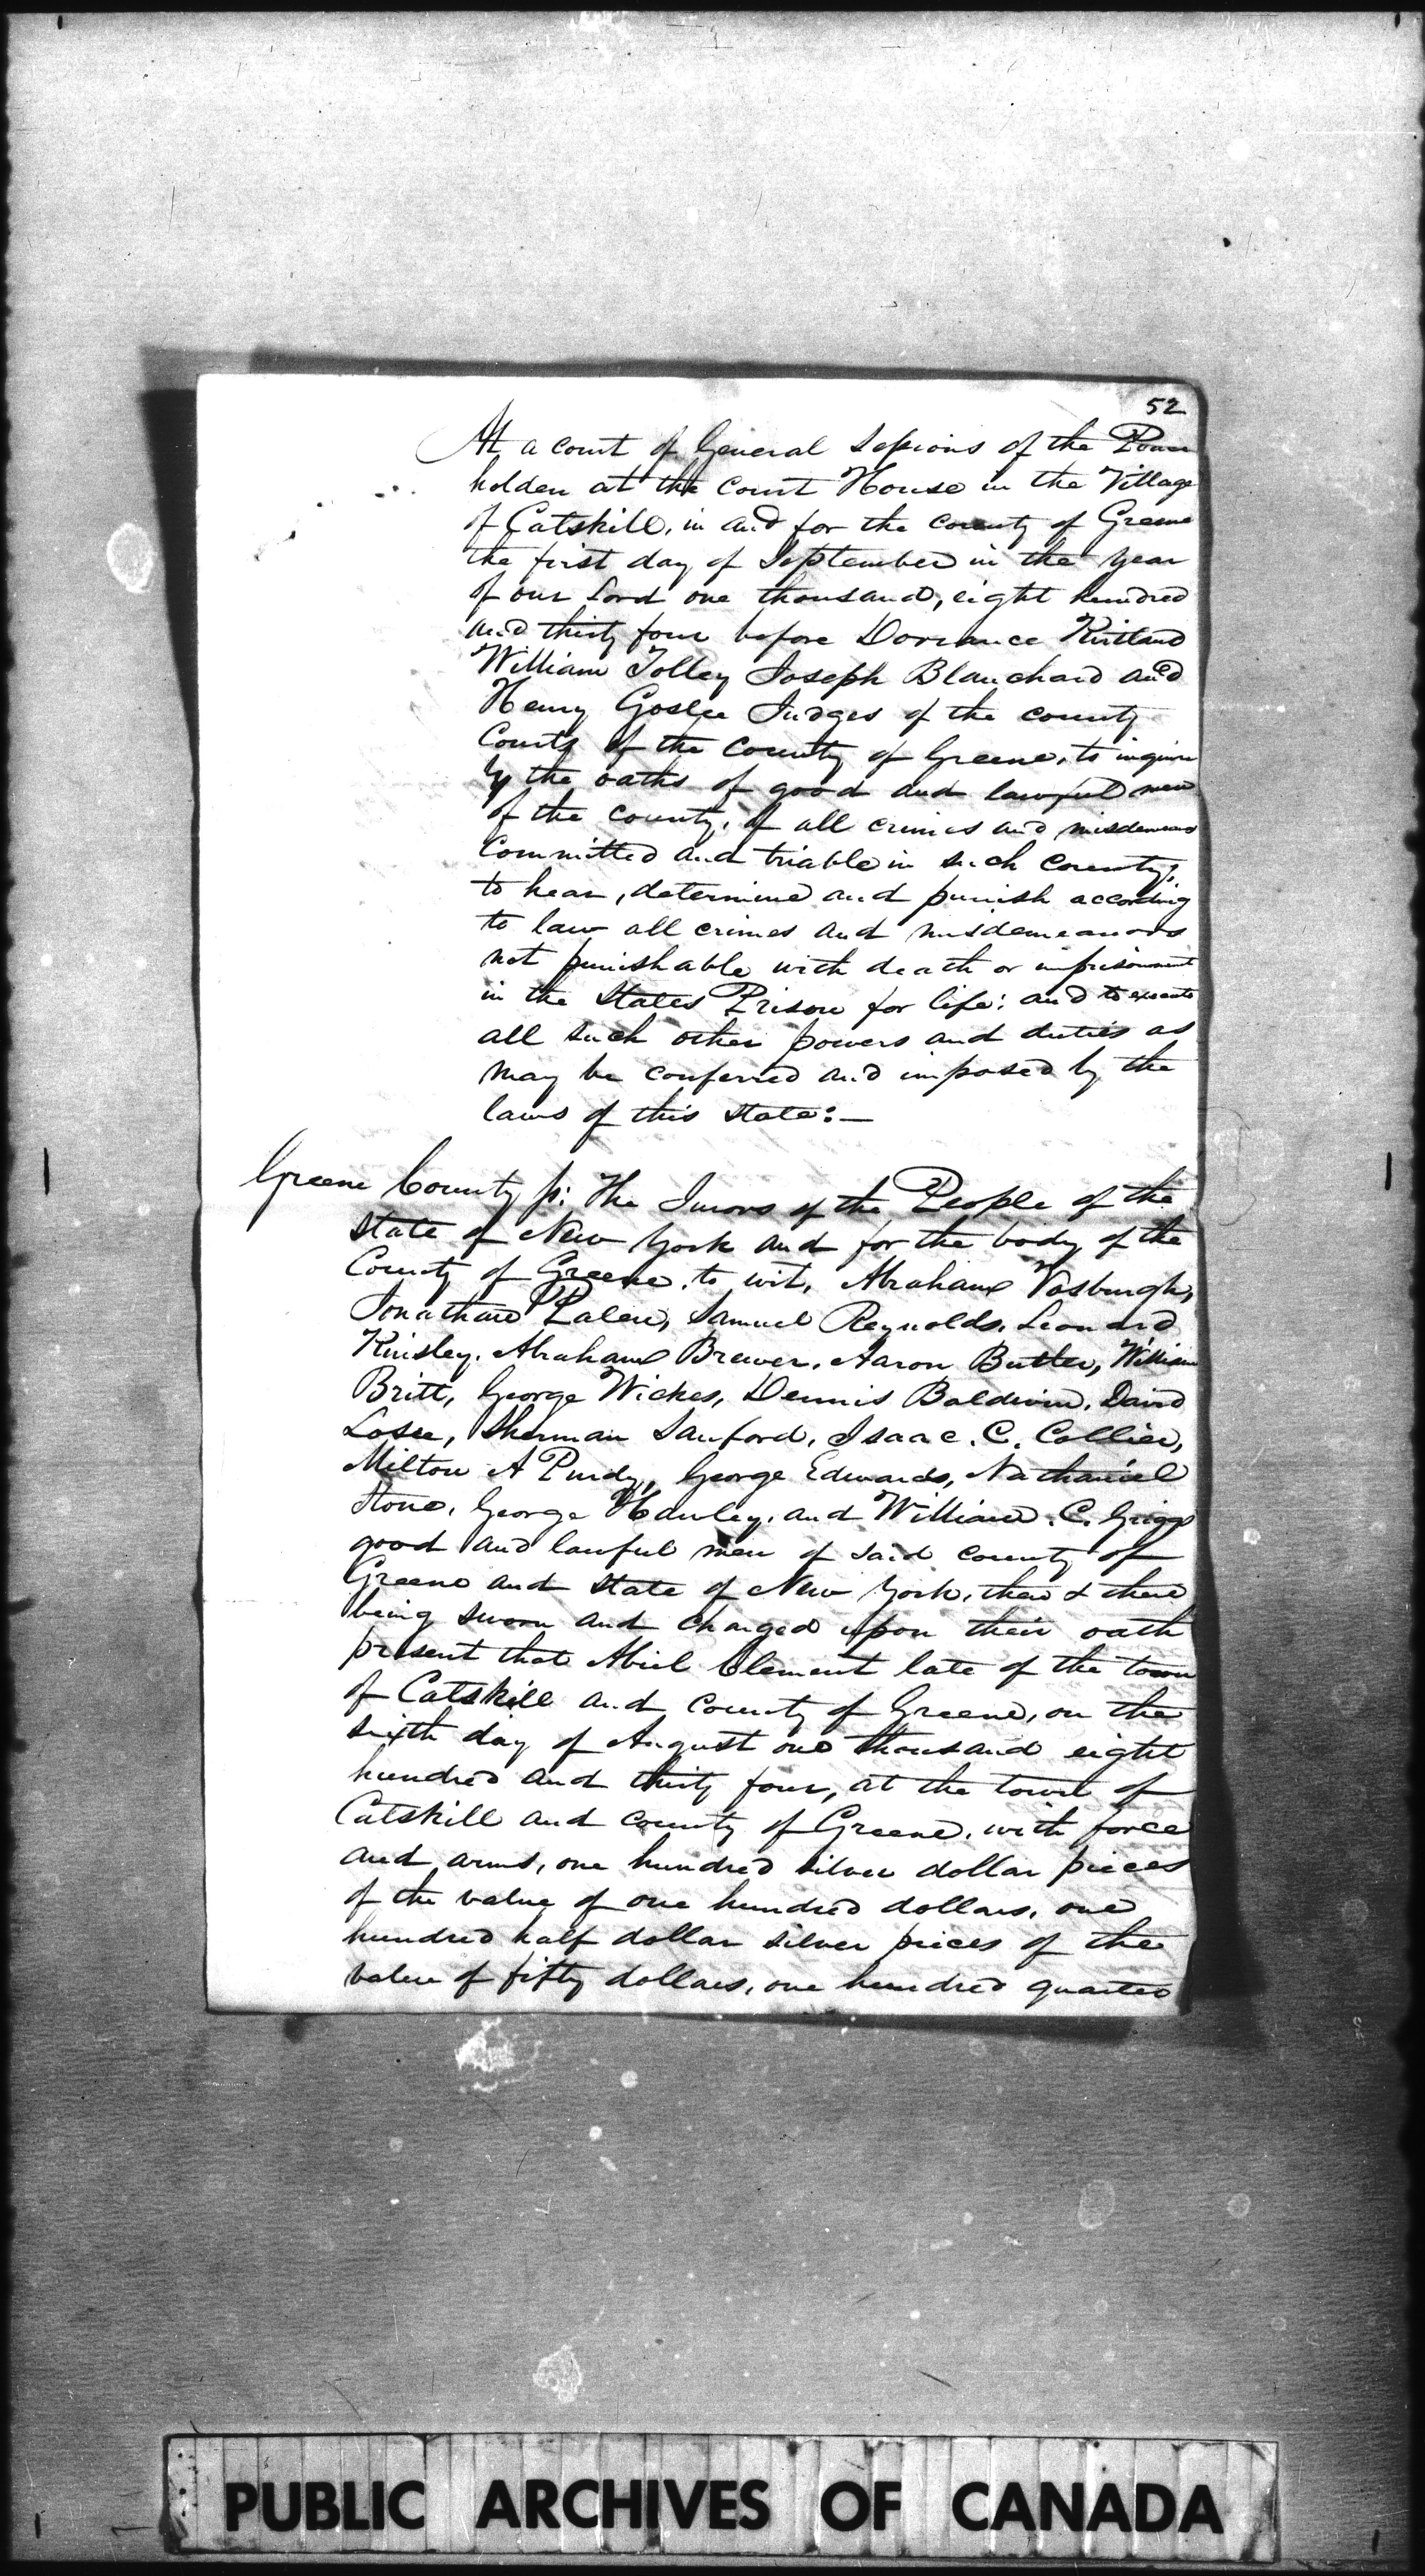 52
At a court of General Sessions of the Peace
holden at the Court House in the Village
of Catskill, in and for the county of Greene
the first day of September in the year
of our Lord one thousand, eight hundred
and thirty four before Dorrance Kirtland
William Tolley Joseph Blanchard and
Henry Goslee Judges of the county
Courts of the County of Greene, to inquire
by the oaths of good and lawful men
of the county, of all crimes and misdemeanors
Committed and triable in such County;
to hear, determine and punish according
to law all crimes and misdemeanors
not punishable with death or imprisonment
in the States Prison for life: and to execute
all such other powers and duties as
may be conferred and imposed by the
laws of this State:—
Greene County ss: The Jurors of the People of the
State of New York and for the body of the
County of Greene, to wit, Abraham Vosburgh,
Jonathan Palen, Samuel Reynolds, Leonard
Kinsley, Abraham Brewer, Aaron Butler, William
Britt, George Wickes, Dennis Baldwin, David
Losee, Sherman Sanford, Isaac. C. Collier,
Milton A Purdy, George Edwards, Nathaniel
Stone, George Hawley, and William. C. Griggs
good and lawful men of said county of
Greene and State of New York, then & there
being sworn and charged upon their oath
present that Abiel Clement late of the town
of Catskill and County of Greene, on the
sixth day of August one thousand eight
hundred and thirty four, at the town of
Catskill and county of Greene, with force
and arms, one hundred silver dollar pieces
of the value of one hundred dollars, one
hundred half dollar silver pieces of the
value of fifty dollars, one hundred quarter
PUBLIC ARCHIVES OF CANADA